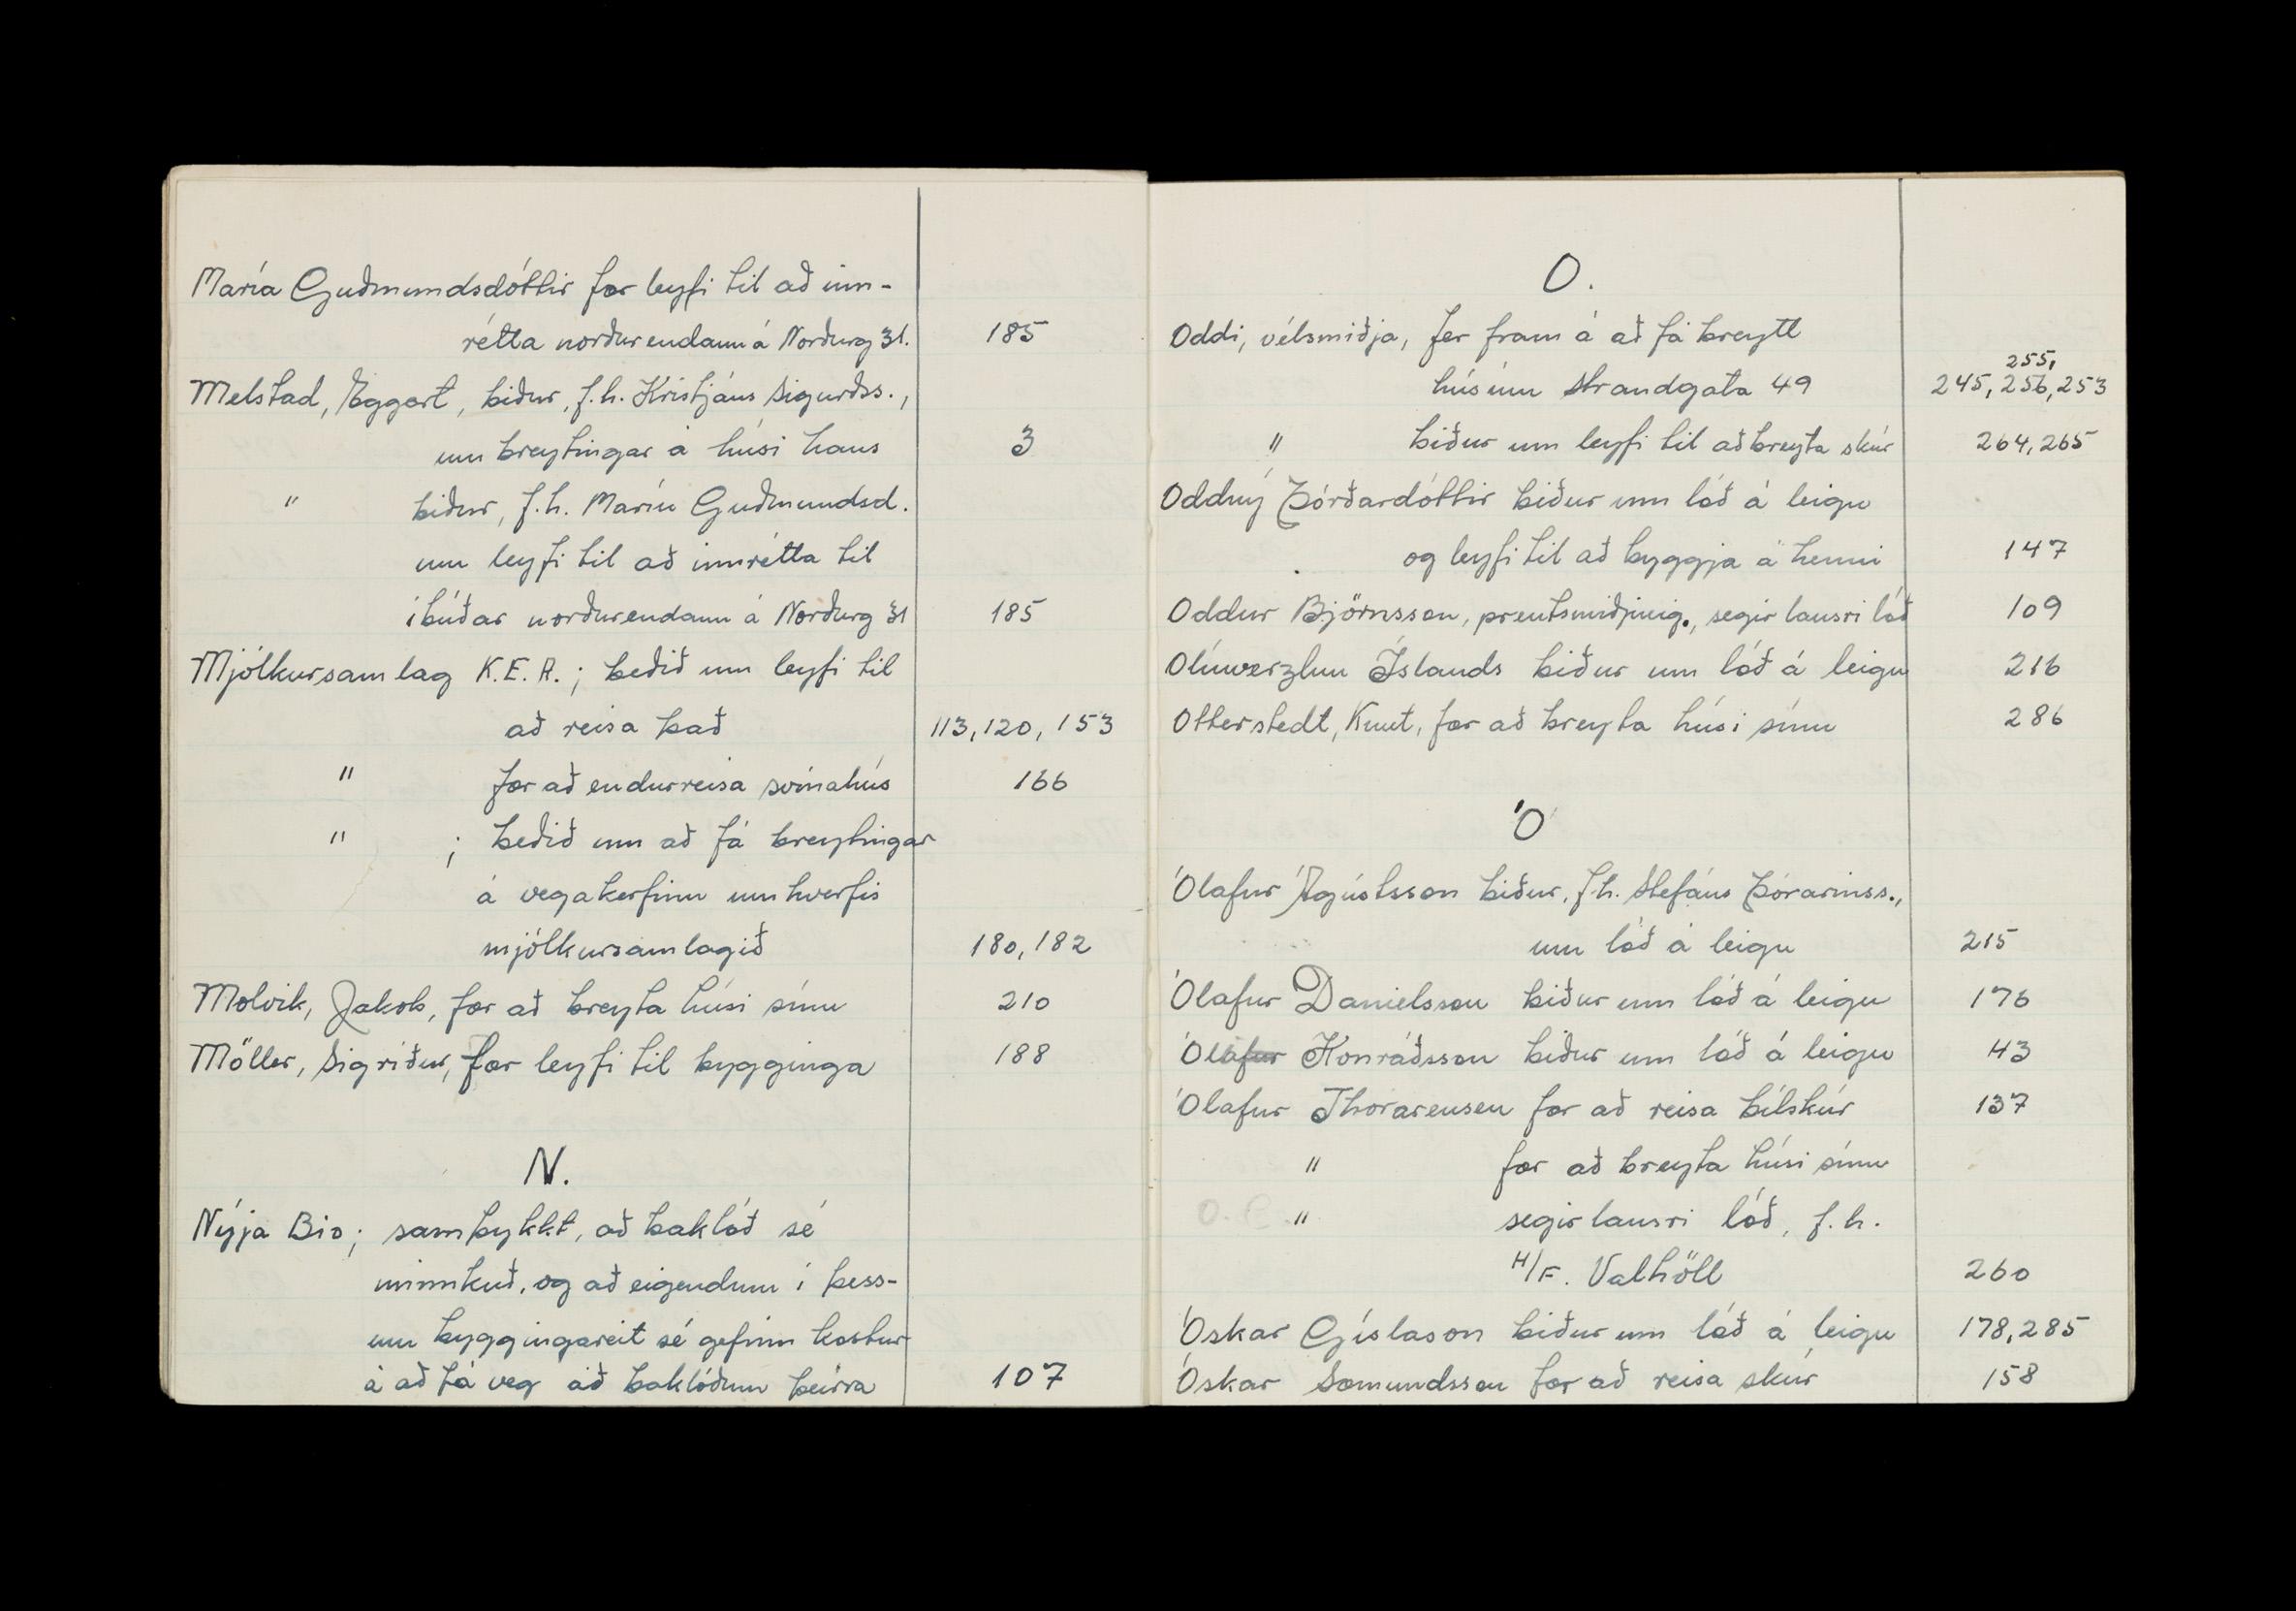 María Guðmundsdóttir fær leyfi til að inn-
rétta norðurendann á Norðurg 31. 185
Melstad, Eggert, biður, f.h. Kristjáns Sigurðss.,
um breytingar á húsi hans 3
" biður, f.h. Maríu Guðmundsd.
um leyfi til að innrétta til
íbúðar norðurendann á Norðurg 31 185
Mjólkursamlag K.E.A.; beðið um leyfi til
að reisa það 113, 120, 153
" fær að endurreisa svínahús 166
" ; beðið um að fá breytingar
á vegakerfinu umhverfis
mjólkursamlagið 180, 182
Molvik, Jakob, fær að breyta húsi sínu 210
Möller, Sigríður, fær leyfi til bygginga 188
N.
Nýja Bio; samþykkt, að baklóð sé
minnkuð, og að eigendum í þess-
um byggingareit sé gefinn kostur
á að fá veg að baklóðum þeirra 107
O.
Oddi, vélsmiðja, fer fram á að fá breytt
255,
húsinu Strandgata 49 245, 256, 253
" biður um leyfi til að breyta skúr 264, 265
Oddný Þórðardóttir biður um lóð á leigu
og leyfi til að byggja á henni 147
Oddur Björnsson, prentsmiðjueig., segir lausri lóð 109
Olíuverzlun Íslands biður um lóð á leigu 216
Otterstedt, Knut, fær að breyta húsi sínu 286
Ó
Ólafur Ágústsson biður, f.h. Stefáns Þórarinss.,
um lóð á leigu 215
Ólafur Danielsson biður um lóð á leigu 176
Ólafur Konráðsson biður um lóð á leigu 43
Ólafur Thorarensen fær að reisa bílskúr 137
" fær að breyta húsi sínu
" segir lausri lóð, f.h.
H/F. Valhöll 260
Óskar Gíslason biður um lóð á leigu 178, 285
Óskar Sæmundsson fær að reisa skúr 158